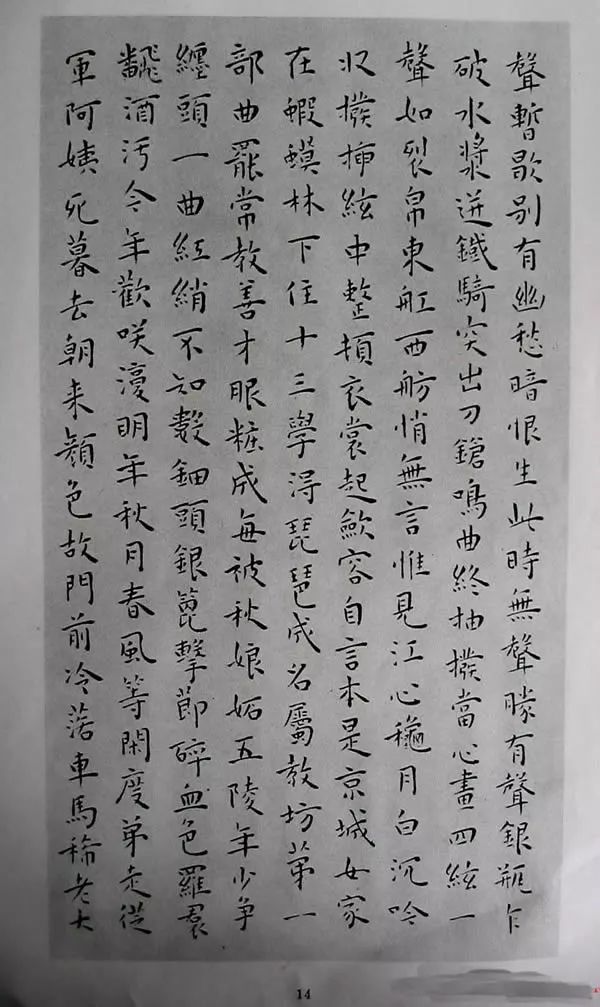 聲暫歇别有幽愁暗恨生此時無聲勝有聲銀瓶乍
破水漿迸鐵騎突出刀鎗鳴曲終抽撥當心畫四絃一
聲如裂帛東舡西舫悄無言惟見江心穐月白沉吟
収撥挿絃中整頓衣裳起歛容自言本是京城女家
在蝦蟆林下住十三學得琵琶成名屬教坊第一
部曲罷常教善才眼粧成每被秋娘妬五陵年少爭
纏頭一曲紅綃不知數鈿頭銀篦擊節碎血色羅裠
飜酒污今年歡咲復明年秋月春風等閑度弟走從
軍阿姨死暮去朝来顏色故門前冷落車馬稀老大
14